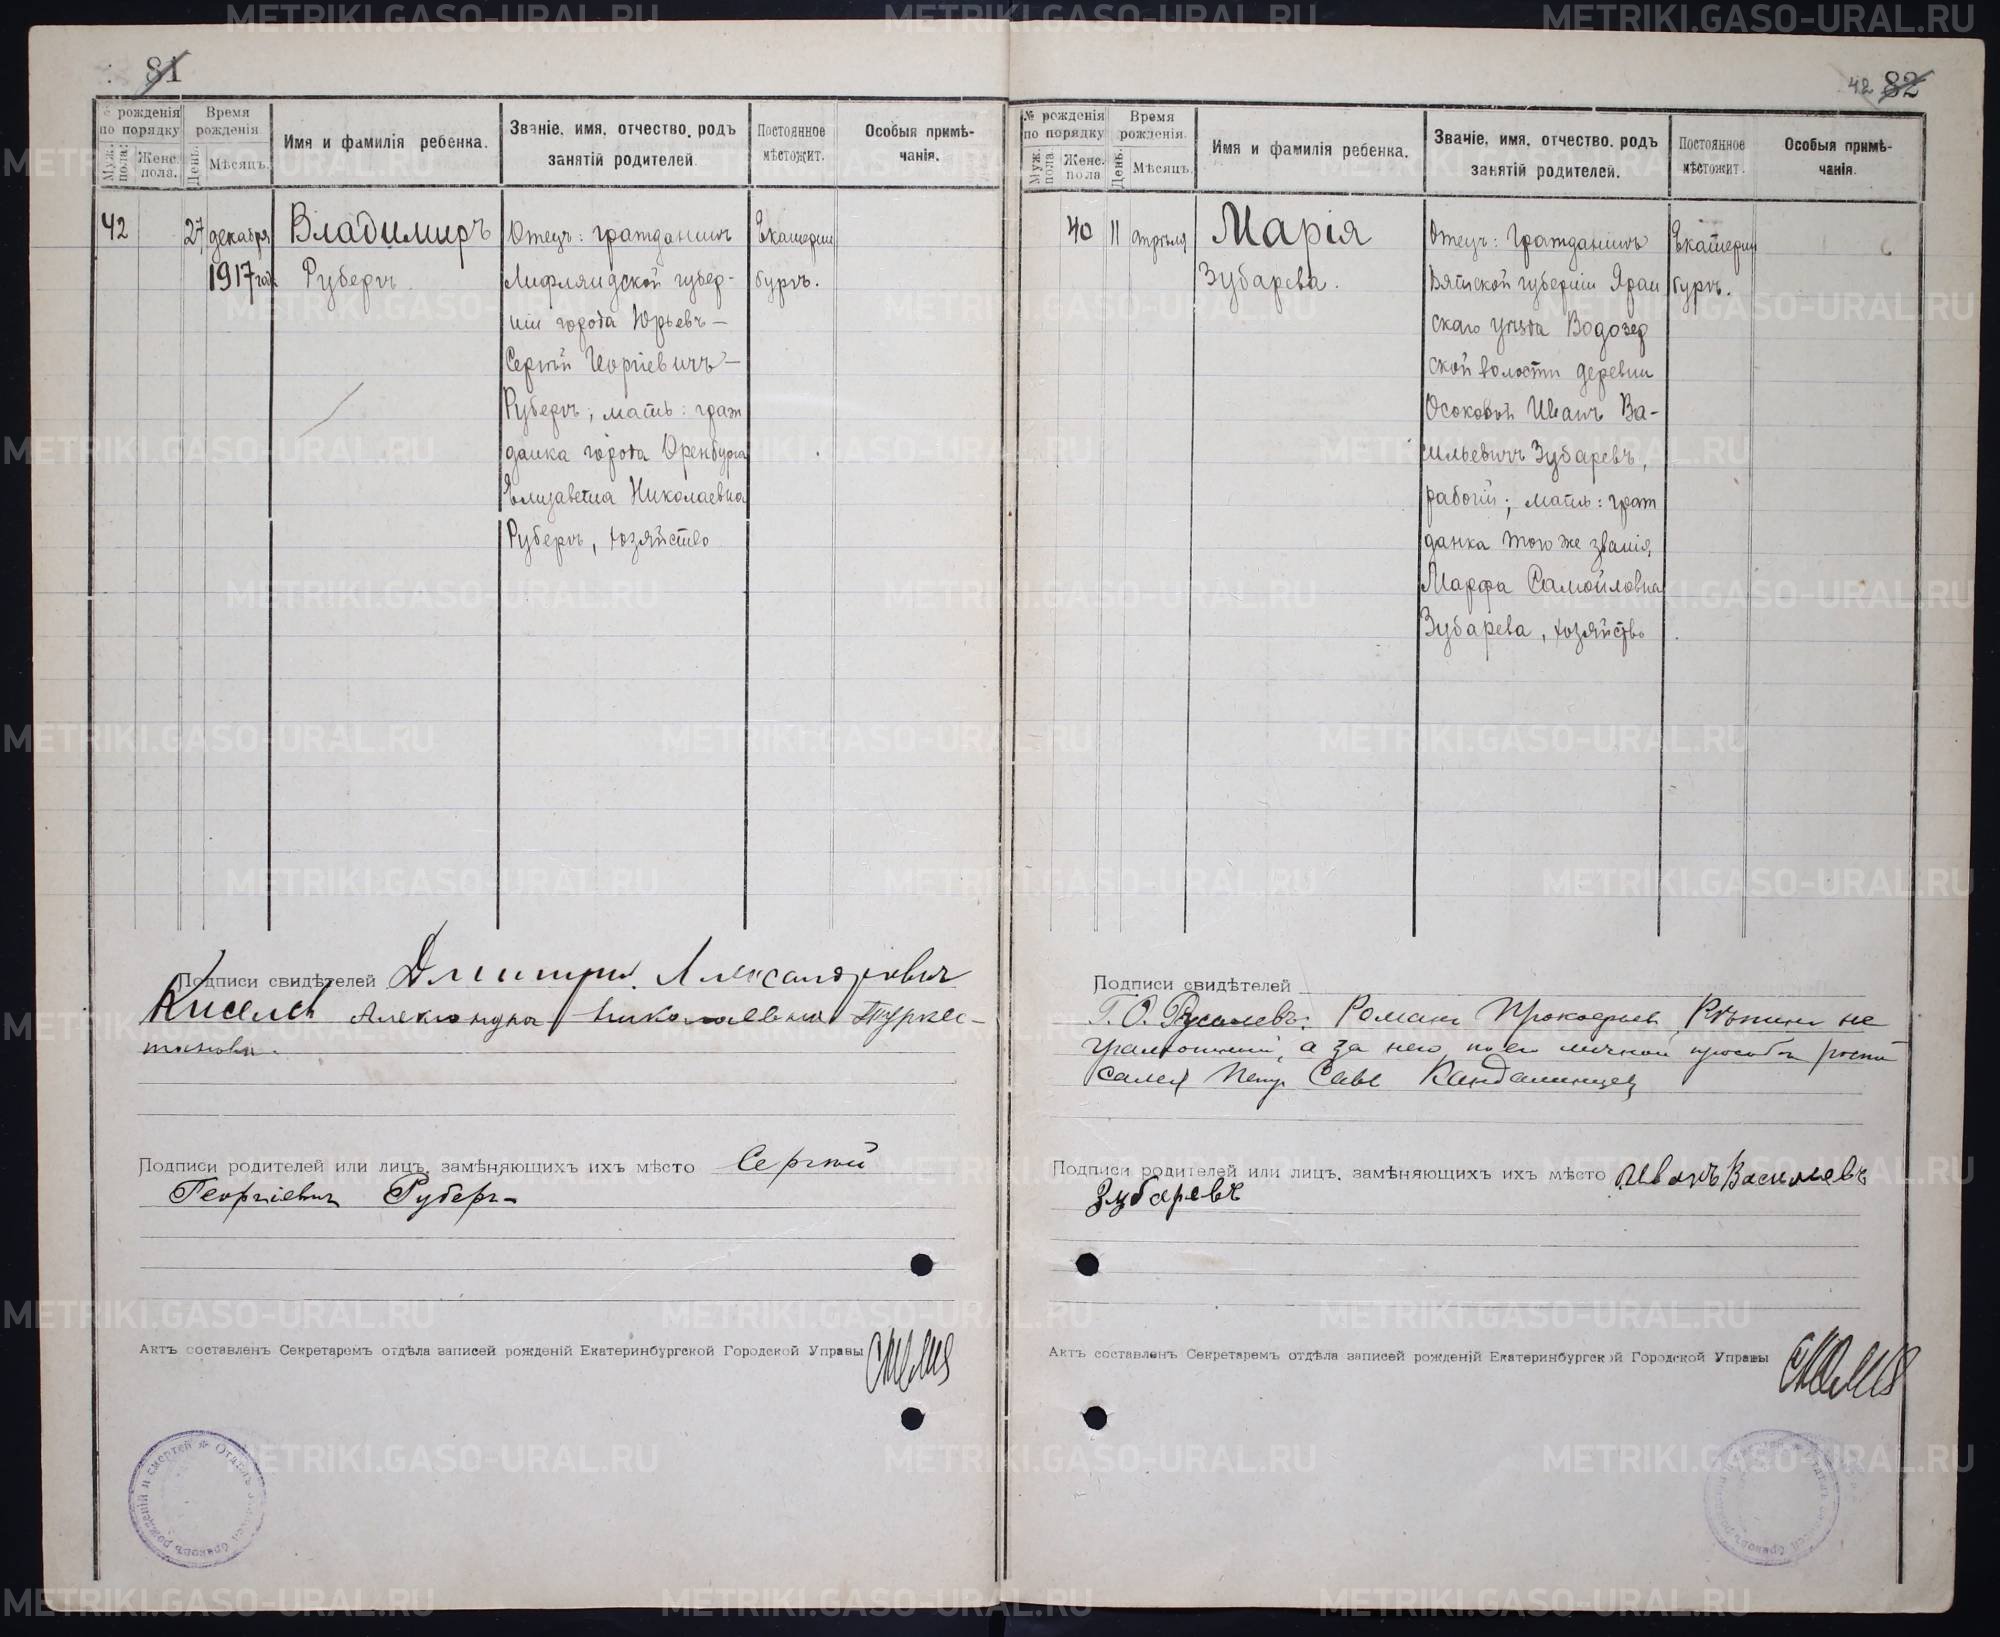 81
№ рожденія по порядку
Муж. пола.
Женс. пола.
Время рожденія
День.
Мѣсяцъ.
Имя и фамилія ребенка.
Званіе, имя, отчество, родъ занятій родителей.
Постоянное мѣстожит.
Особыя примѣчанія.
42
27
декабря
1917 год
Владимиръ
Рубергъ
Отецъ: гражданинъ
Лифляндской губер-
ніи города Юрьевъ-
Сергѣй Георгіевичъ-
Рубергъ; мать: граж
данка города Оренбурга
Елизавета Николаевна
Рубергъ, хозяйство
Екатерин
бургъ.
Подписи свидѣтелей Дмитрій Александровичъ
Киселев Александра Николаевна Туркес-
танова.
Подписи родителей или лицъ, замѣняющихъ ихъ мѣсто Сергѣй
Георгіевичъ Рубергъ
Актъ составленъ Секретаремъ отдѣла записей рожденій Екатеринбургской Городской Управы
Отдѣлъ записей браковъ рожденій и смертей
42 82
№ рожденія по порядку
Муж. пола
Женс. пола
Время рожденія.
День.
Мѣсяцъ.
Имя и фамилія ребенка.
Званіе, имя, отчество, родъ занятій родителей.
Постоянное мѣстожит.
Особыя примѣчанія.
40
11
апрѣля
Марія
Зубарева.
Отецъ: Гражданинъ
Вятской губерніи Яран
скаго уѣзда Водозер
ской волости деревни
Осоковой Иванъ Ва-
сильевичъ Зубаревъ,
рабочій; мать: граж
данка того же званія,
Марфа Самойловна
Зубарева, хозяйство
Екатерин
бургъ.
Подписи свидѣтелей
Г. О. Русалевъ. Роман Прокофьев Рѣпинъ не
грамотный, а за него по его личной просьбѣ роспи
сался Петр Сав. Кандалинцев
Подписи родителей или лицъ, замѣняющихъ ихъ мѣсто Иванъ Васильевъ
Зубаревъ
Актъ составленъ Секретаремъ отдѣла записей рожденій Екатеринбургской Городской Управы
METRIKI.GASO-URAL.RU